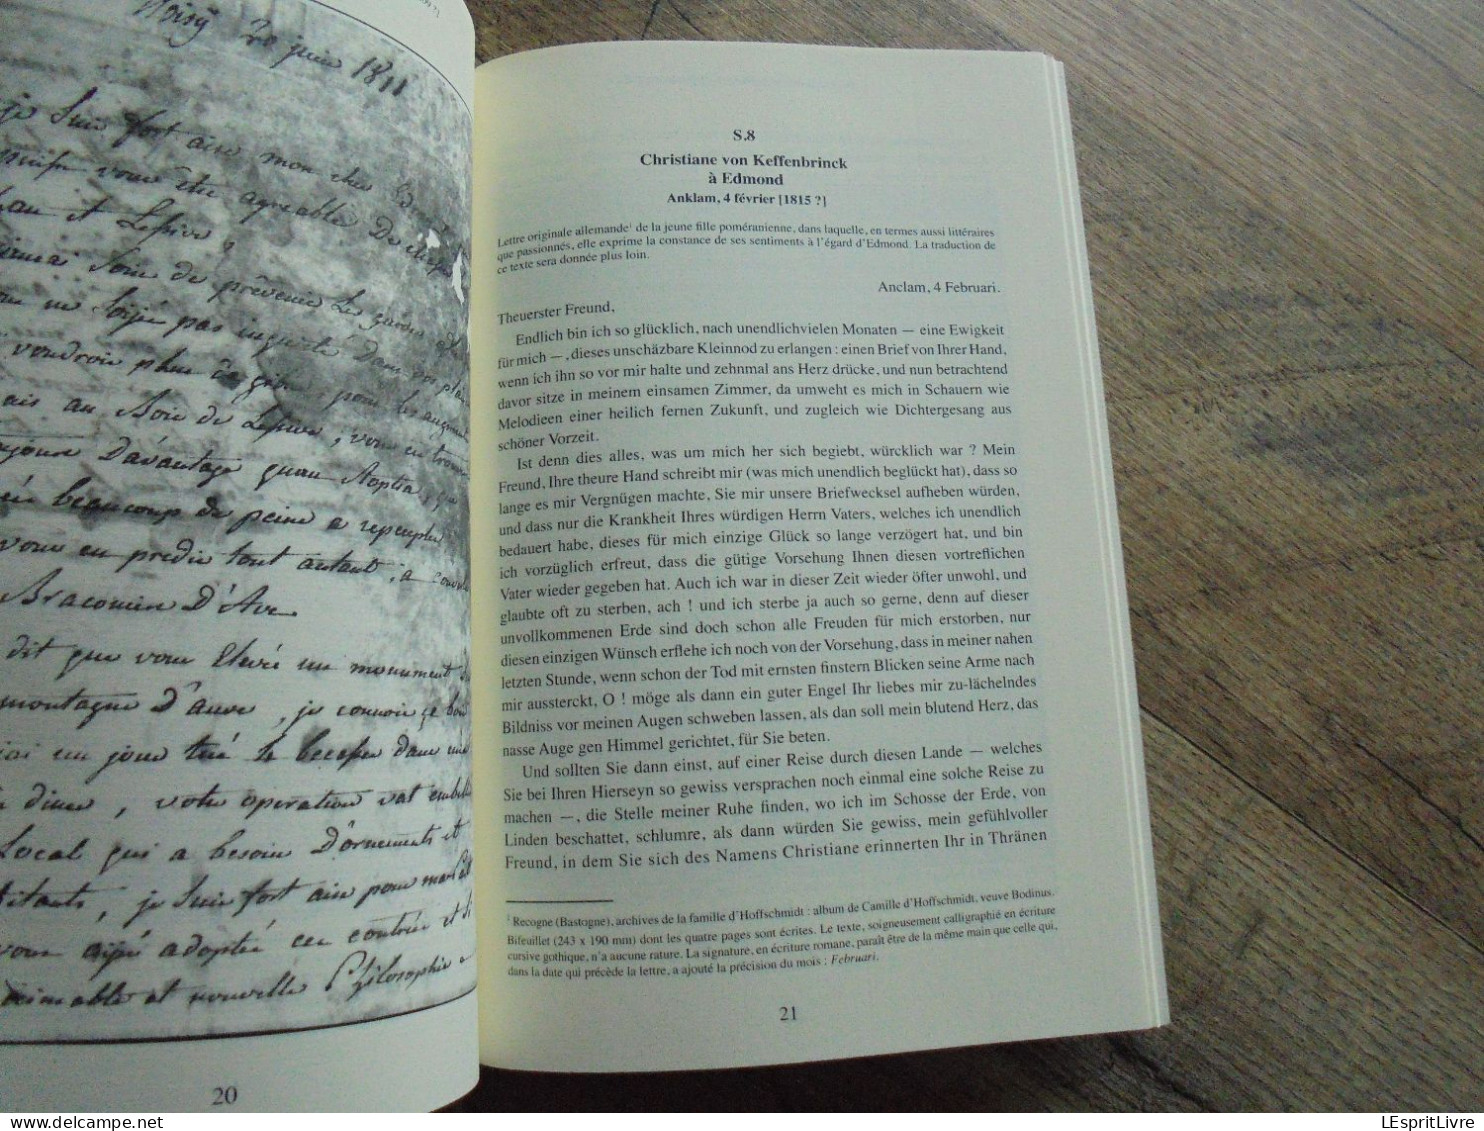 Noisy 20 juin 1811
je suis fort aise mon cher
vous être agréable
Lesive
soin de prévenir Les
ne soyez pas inquieté dans vos
voudrois plus de gibier pour les augmenter
au Bois de Lesive, vous en
D'avantage quau
beaucoup de peine a repeupler
vous en predie tout autant, a
Bracomier D'Ave
dit que vous Elevé un monument
montagne D'auve, je connois ce
un jour tué le becasse dans
diner, votre operation vat embellir
Local qui a besoin D'ornements et
je suis fort aise pour
vous ayé adopté ces contrées et
aimable et nouvelle Philosophie
20
S.8
Christiane von Keffenbrinck
à Edmond
Anklam, 4 février [1815 ?]
Lettre originale allemande¹ de la jeune fille poméranienne, dans laquelle, en termes aussi littéraires
que passionnés, elle exprime la constance de ses sentiments à l'égard d'Edmond. La traduction de
ce texte sera donnée plus loin.
Anclam, 4 Februari.
Theuerster Freund,
Endlich bin ich so glücklich, nach unendlichvielen Monaten — eine Ewigkeit
für mich —, dieses unschäzbare Kleinnod zu erlangen : einen Brief von Ihrer Hand,
wenn ich ihn so vor mir halte und zehnmal ans Herz drücke, und nun betrachtend
davor sitze in meinem einsamen Zimmer, da umweht es mich in Schauern wie
Melodieen einer heilich fernen Zukunft, und zugleich wie Dichtergesang aus
schöner Vorzeit.
Ist denn dies alles, was um mich her sich begiebt, würcklich war ? Mein
Freund, Ihre theure Hand schreibt mir (was mich unendlich beglückt hat), dass so
lange es mir Vergnügen machte, Sie mir unsere Briefwecksel aufheben würden,
und dass nur die Krankheit Ihres würdigen Herrn Vaters, welches ich unendlich
bedauert habe, dieses für mich einzige Glück so lange verzögert hat, und bin
ich vorzüglich erfreut, dass die gütige Vorsehung Ihnen diesen vortreflichen
Vater wieder gegeben hat. Auch ich war in dieser Zeit wieder öfter unwohl, und
glaubte oft zu sterben, ach ! und ich sterbe ja auch so gerne, denn auf dieser
unvollkommenen Erde sind doch schon alle Freuden für mich erstorben, nur
diesen einzigen Wünsch erflehe ich noch von der Vorsehung, dass in meiner nahen
letzten Stunde, wenn schon der Tod mit ernsten finstern Blicken seine Arme nach
mir aussterckt, O ! möge als dann ein guter Engel Ihr liebes mir zu-lächelndes
Bildniss vor meinen Augen schweben lassen, als dan soll mein blutend Herz, das
nasse Auge gen Himmel gerichtet, für Sie beten.
Und sollten Sie dann einst, auf einer Reise durch diesen Lande — welches
Sie bei Ihren Hierseyn so gewiss versprachen noch einmal eine solche Reise zu
machen —, die Stelle meiner Ruhe finden, wo ich im Schosse der Erde, von
Linden beschattet, schlumre, als dann würden Sie gewiss, mein gefühlvoller
Freund, in dem Sie sich des Namens Christiane erinnerten Ihr in Thränen
¹ Recogne (Bastogne), archives de la famille d'Hoffschmidt : album de Camille d'Hoffschmidt, veuve Bodinus.
Bifeuillet (243 x 190 mm) dont les quatre pages sont écrites. Le texte, soigneusement calligraphié en écriture
cursive gothique, n'a aucune rature. La signature, en écriture romane, paraît être de la même main que celle qui,
dans la date qui précède la lettre, a ajouté la précision du mois : Februari.
21
LEspritLivre